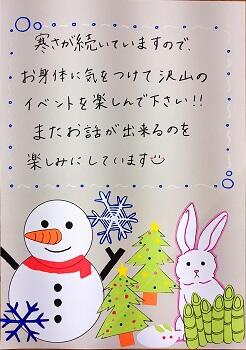 寒さが続いていますので、
お身体に気をつけて沢山の
イベントを楽しんで下さい!!
またお話が出来るのを
楽しみにしています